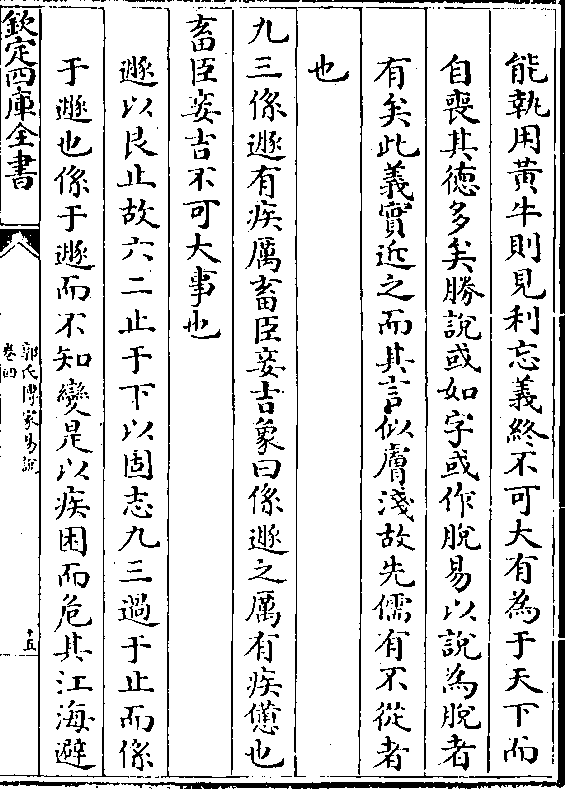 能執用黃牛則見利忘義終不可大有為于天下而
自喪其德多矣勝說或如字或作脫易以說為脫者
有矣此義實近之而其言似膚淺故先儒有不從者
也
九三係遯有疾厲畜臣妾吉象曰係遯之厲有疾憊也
畜臣妾吉不可大事也
遯以艮止故六二止于下以固志九三過于止而係
于遯也係于遯而不知變是以疾困而危其江海避
欽定四庫全書
郭氏傳家易說
卷四
十五